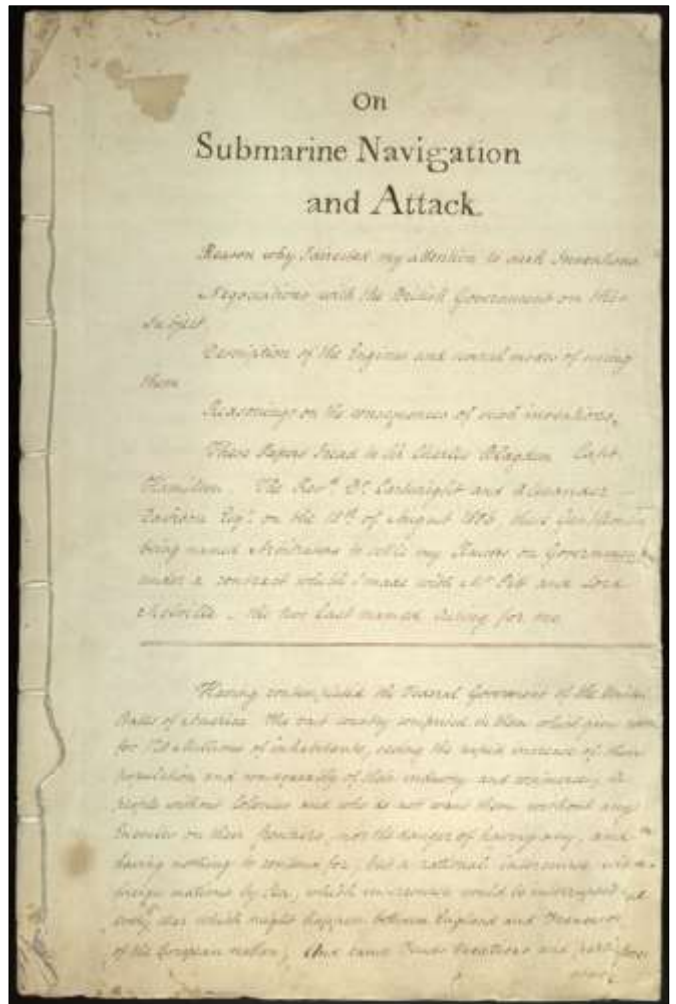 On
Submarine Navigation
and Attack.
Reason why I directed my attention to such Inventions
Negociations with the British Government on this
subject
Description of the Engines and several modes of using
them
Reasonings on the consequences of such inventions,
These Papers I read to Sir Charles Blagden Capt.
Hamilton. The Revd. Dr. Cartwright and Alexander
Esqr. on the 18th of August 1806, these Gentlemen
being named Arbitrators to settle my on Government
under a contract which I made with Mr Pitt and Lord
Melville – the two last named for me
Having contemplated the Federal Government of the United
States of America The vast country comprised in them which gives room
for 120 Millions of inhabitants, seeing the rapid increase of their
population and consequently of their industry and commerce, a
people without Colonies and who do not want them without any
Enemies on their frontiers, nor the danger of having any, and
having nothing to contend for, but a rational intercourse with
foreign nations by Sea, which intercourse would be interrupted
every war which might happen between England and France or
of the European nation; And